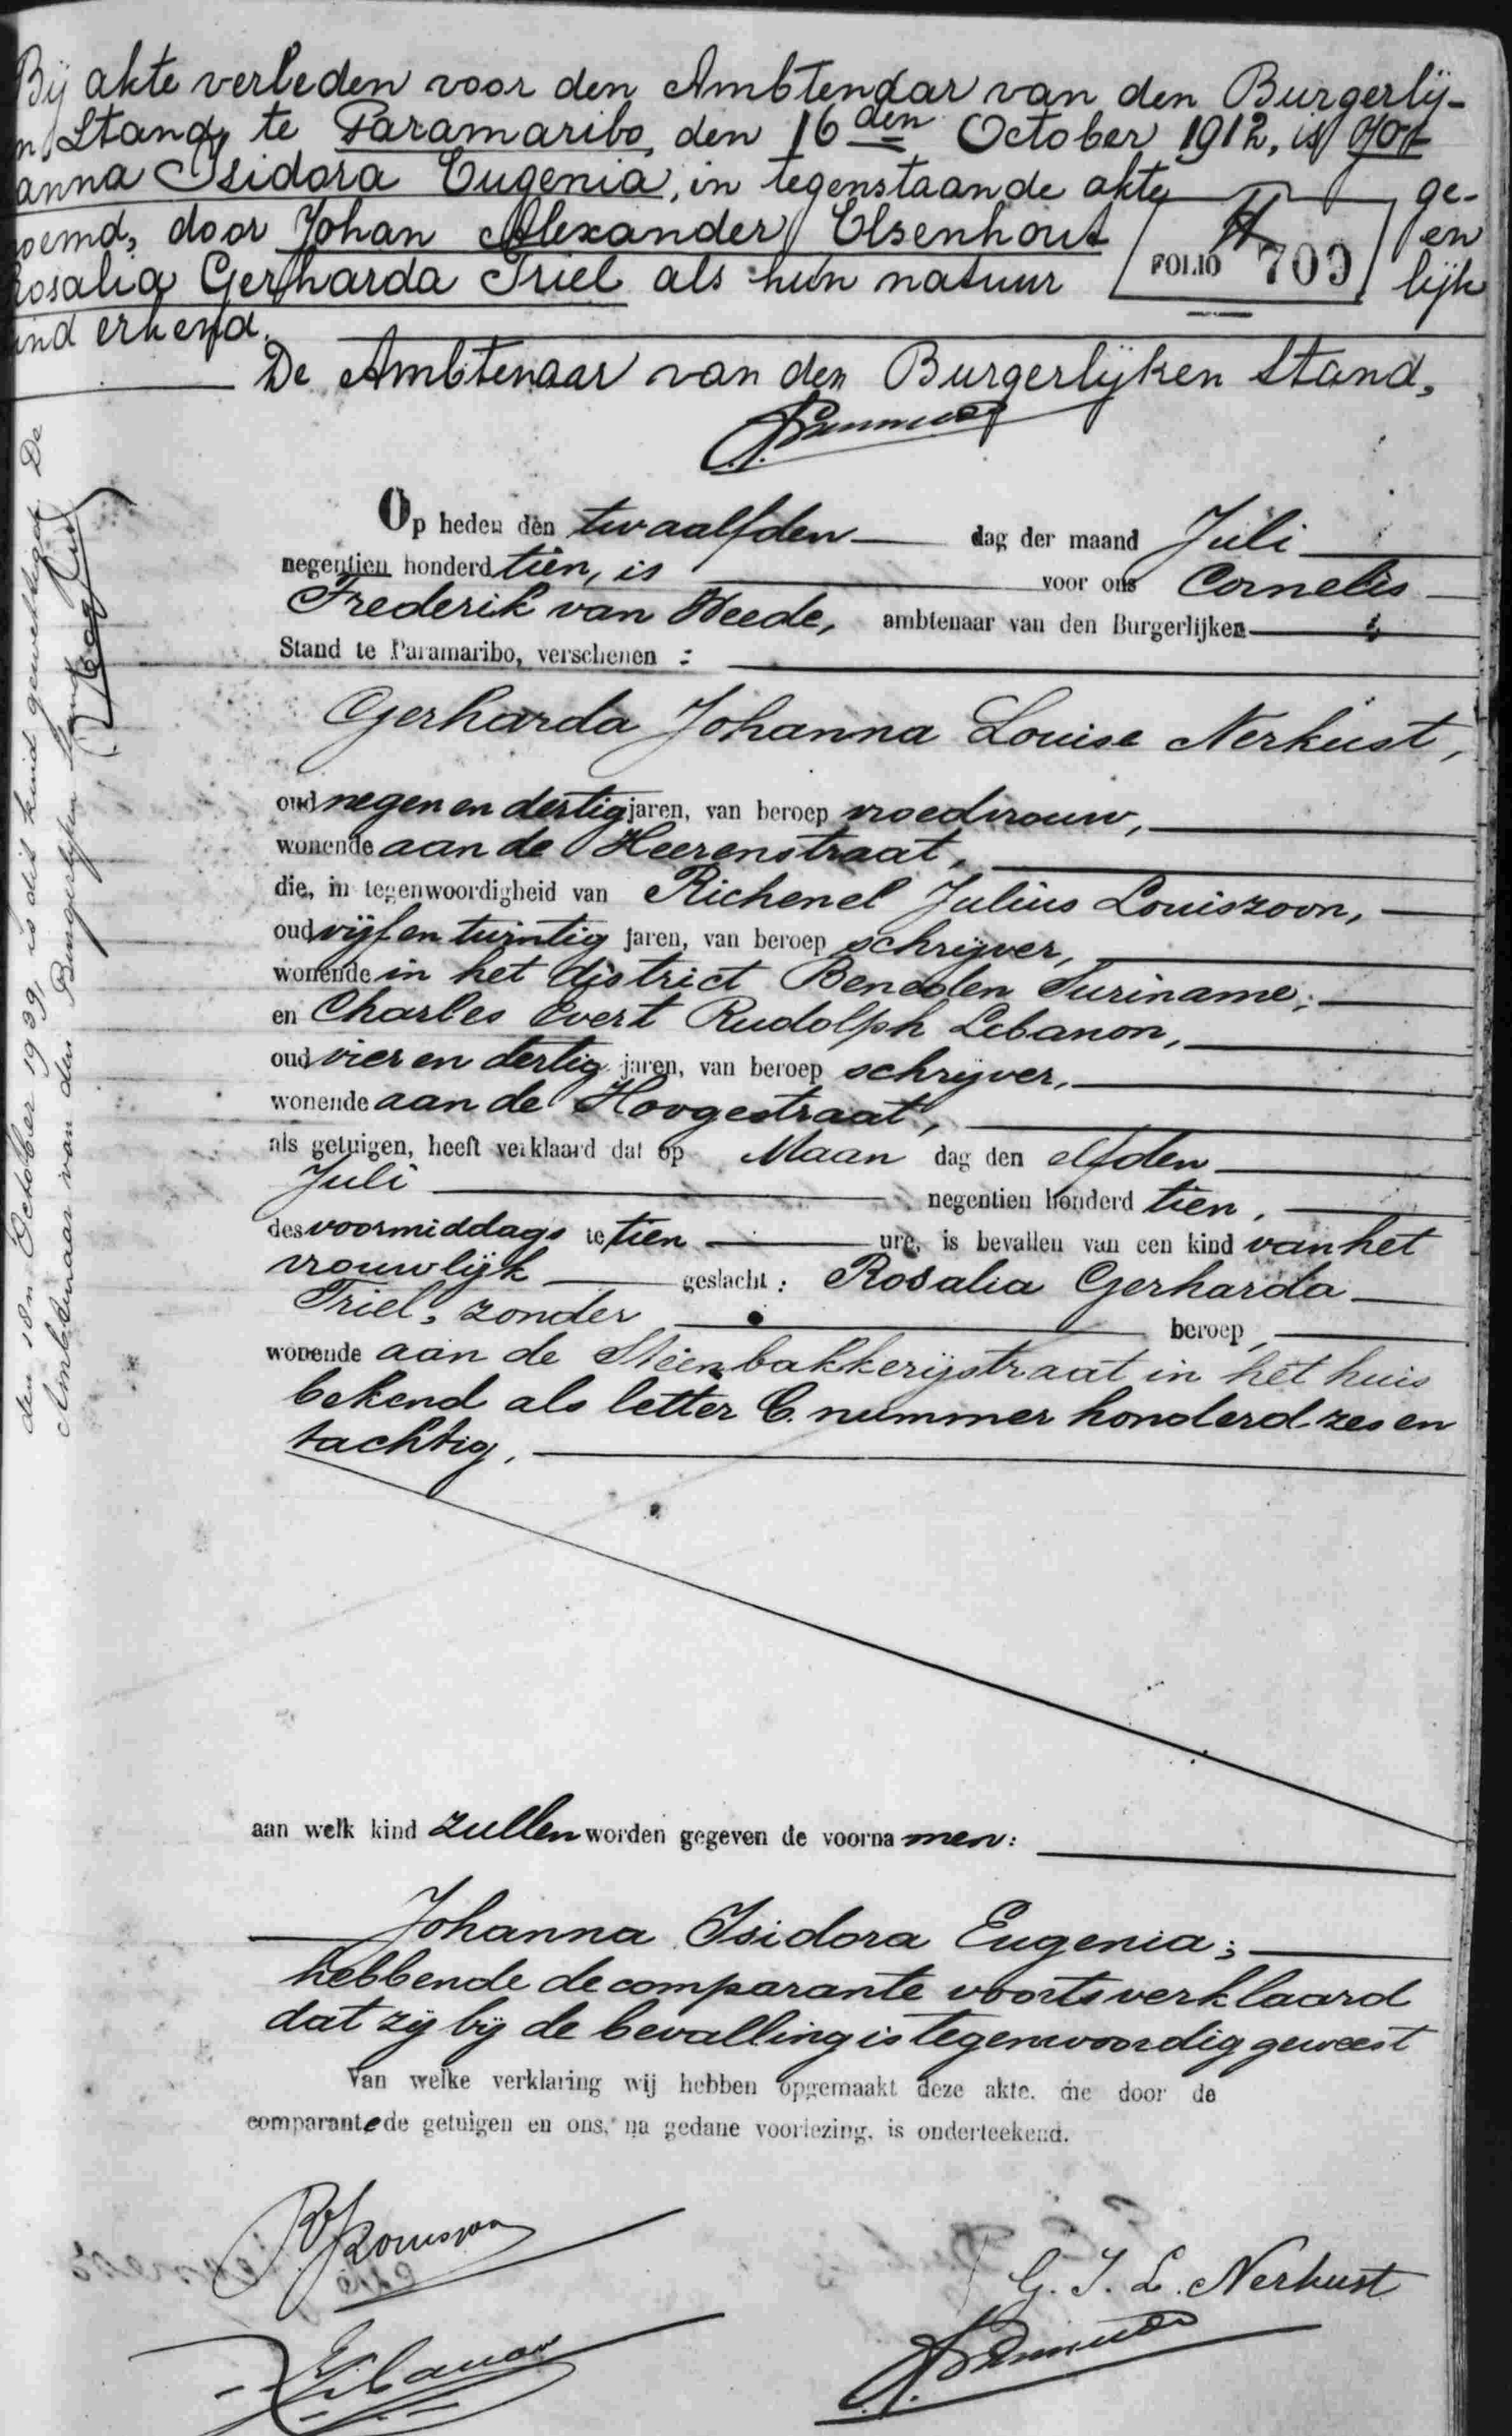 Bij akte verleden voor den Ambtenaar van den Burgerlij-
n Stand, te Paramaribo, den 16den October 1912, is Joh
anna Isidora Eugenia, in tegenstaande akte ge-
oemd, door Johan Alexander Elsenhout en
osalia Gerharda Triel als hun natuur lijk
ind erkend.
FOLIO 709
De Ambtenaar van den Burgerlijken Stand,
den 18n October 1939, is dit kind gewettigd. De
Ambtenaar van den Burgerlijken Stand
Op heden den twaalfden dag der maand Juli
negentien honderd tien, is voor ons Cornelis
Frederik van Heede, ambtenaar van den Burgerlijken
Stand te Paramaribo, verschenen :
Gerharda Johanna Louise Nerkust,
oud negen en dertig jaren, van beroep vroedvrouw,
wonende aan de Heerenstraat,
die, in tegenwoordigheid van Richenel Julius Louiszoon,
oud vijf en twintig jaren, van beroep schrijver,
wonende in het district Beneden Suriname;
en Charles Evert Rudolph Lebanon,
oud vier en dertig jaren, van beroep schrijver,
wonende aan de Hoogestraat,
als getuigen, heeft verklaard dat op Maan dag den elfden
Juli negentien honderd tien,
des voormiddags te tien ure, is bevallen van een kind van het
vrouwlijk geslacht: Rosalia Gerharda
Triel, zonder beroep,
wonende aan de Steenbakkerijstraat in het huis
bekend als letter C. nummer honderd zes en
tachtig,
aan welk kind zullen worden gegeven de voorna men:
Johanna Isidora Eugenia;
hebbende de comparante voorts verklaard
dat zij bij de bevalling is tegenwoordig geweest
Van welke verklaring wij hebben opgemaakt deze akte, die door de
comparante de getuigen en ons, na gedane voorlezing, is onderteekend.
RJLouiszoon
G. J. L. Nerkust
Lebanon